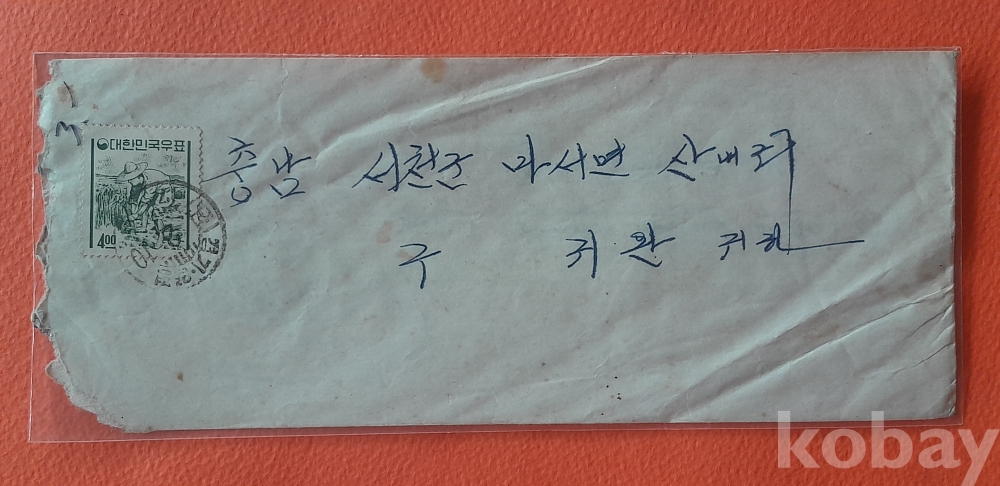 대한민국우표
4.00
충남 서천군 마서면 산내리
구 귀환 귀하
kobay